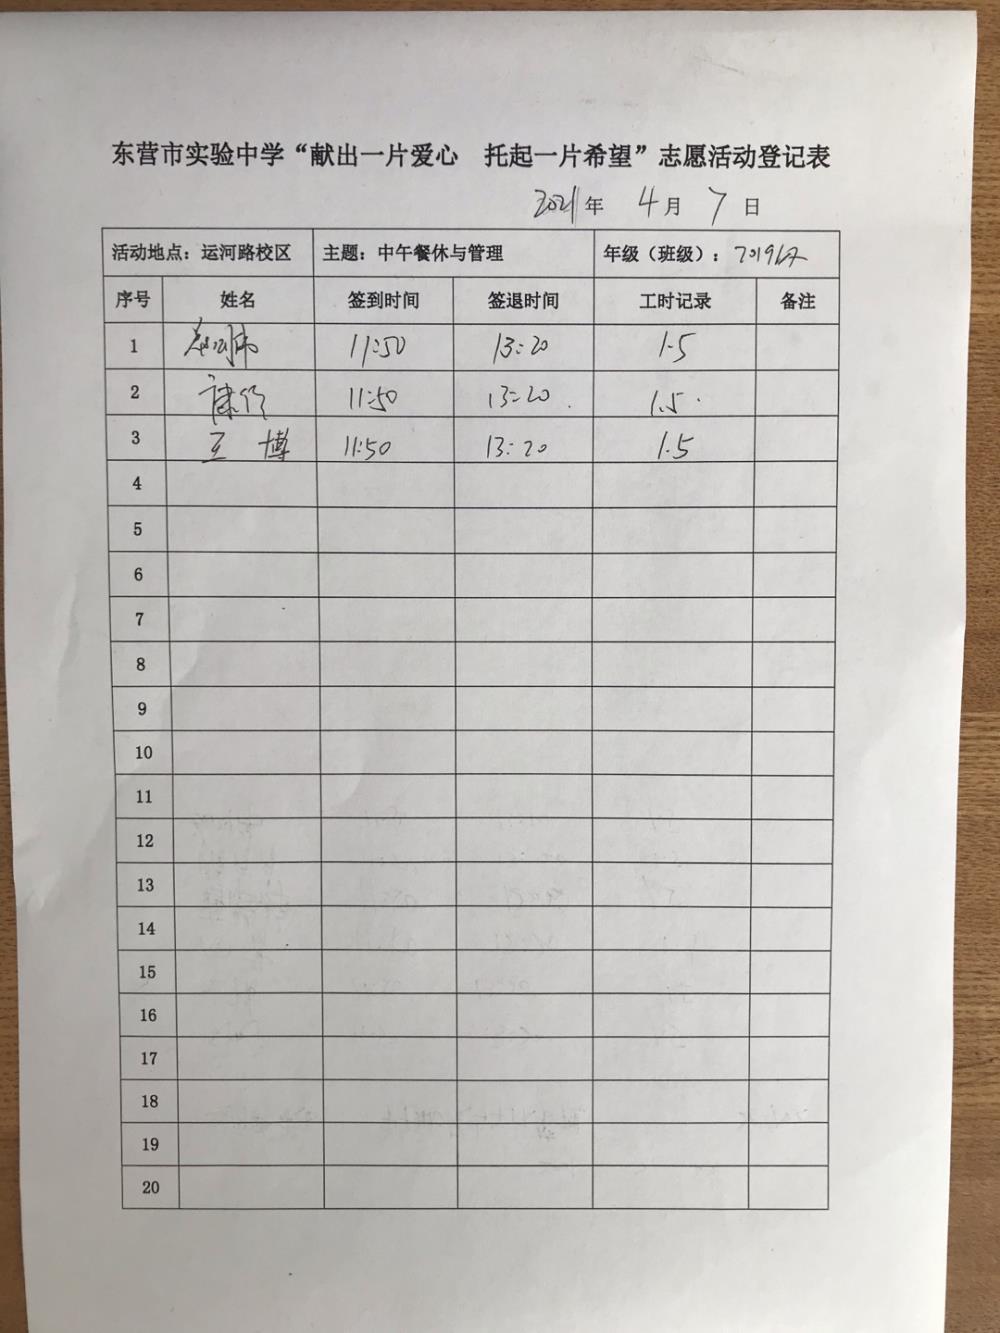 东营市实验中学“献出一片爱心 托起一片希望”志愿活动登记表
2021年 4月 7日
活动地点：运河路校区 主题：中午餐休与管理 年级（班级）：2019级
序号 姓名 签到时间 签退时间 工时记录 备注
1 11:50 13:20 1.5
2 11:50 13:20 1.5
3 王博 11:50 13:20 1.5
4
5
6
7
8
9
10
11
12
13
14
15
16
17
18
19
20